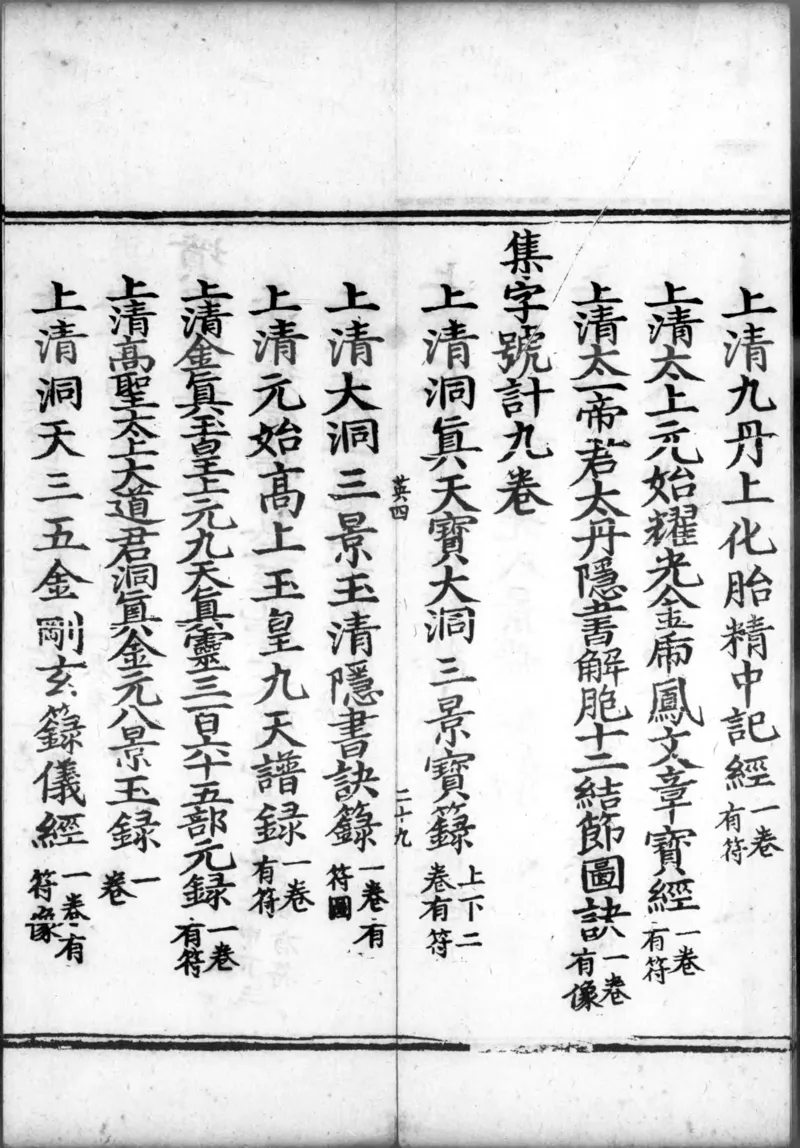 上清九丹上化胎精中記經一卷有符
上清太上元始耀光金虎鳳文章寶經一卷有符
上清太一帝君太丹隱書解胞十二結節圖訣一卷有像
集字號計九卷
上清洞眞天寶大洞三景寶籙上下二卷有符
英四
二十九
上清大洞三景玉清隱書訣籙一卷有符圖
上清元始高上玉皇九天譜録一卷有符
上清金眞玉皇上元九天眞靈三百六十五部元録一卷有符
上清高聖太上大道君洞眞金元八景玉録一卷
上清洞天三五金剛玄籙儀經一卷有符像